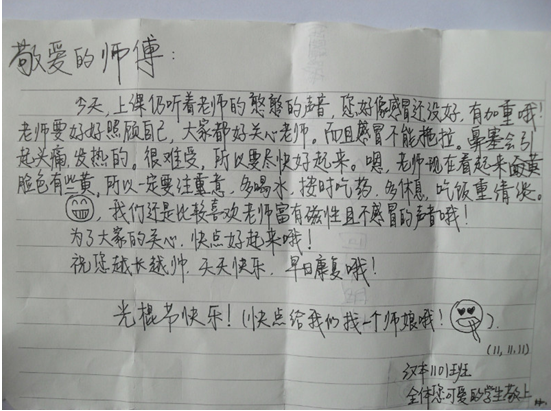 敬爱的师傅：
今天，上课仍听着老师的憨憨的声音，您好像感冒还没好，有加重哦！
老师要好好照顾自己，大家都好关心老师。而且感冒不能拖拉。鼻塞会引
起头痛，发热的。很难受，所以要尽快好起来。嗯，老师现在看起来面黄
脸色有些黄，所以一定要注重意，多喝水，按时吃药，多休息，吃饭重清淡。
，我们还是比较喜欢老师富有磁性且不感冒的声音哦！
为了大家的关心，快点好起来哦！
祝您越长越帅，天天快乐，早日康复哦！
光棍节快乐！（快点给我们找一个师娘哦！）.
（11，11.11）
汉本1101班班
全体您可爱的学生敬上